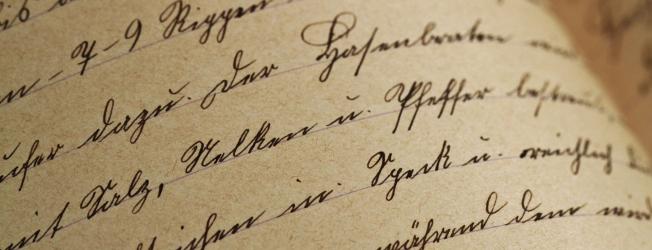 bis
n - 7 - 9 Rippen
dazu. Der Hasenbraten
mit Salz, Nelken u. Pfeffer bestreut,
in Speck u. reichlich
während dem wird